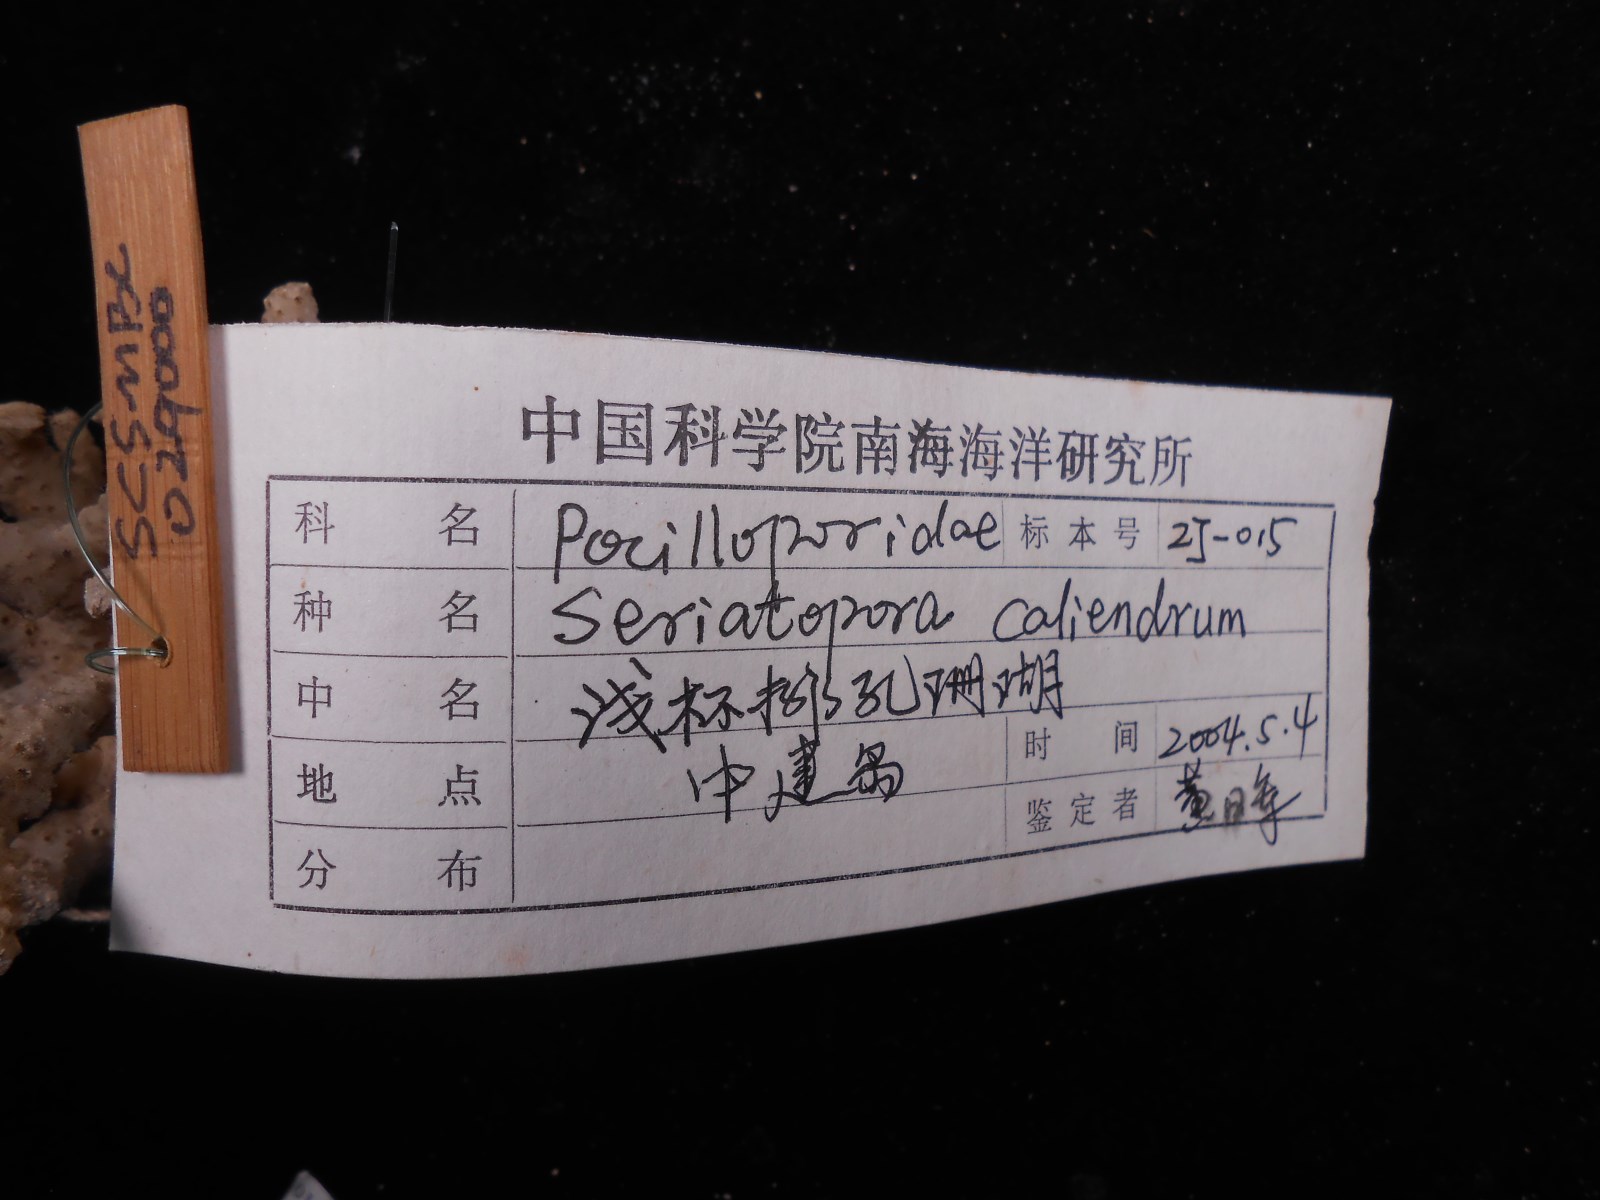 SCSMBC
029000
中国科学院南海海洋研究所
科名 Pocilloporidae 标本号 ZJ-015
种名 Seriatopora caliendrum
中名 浅杯排孔珊瑚
地点 中建岛 时间 2004.5.4
鉴定者 黄
分布